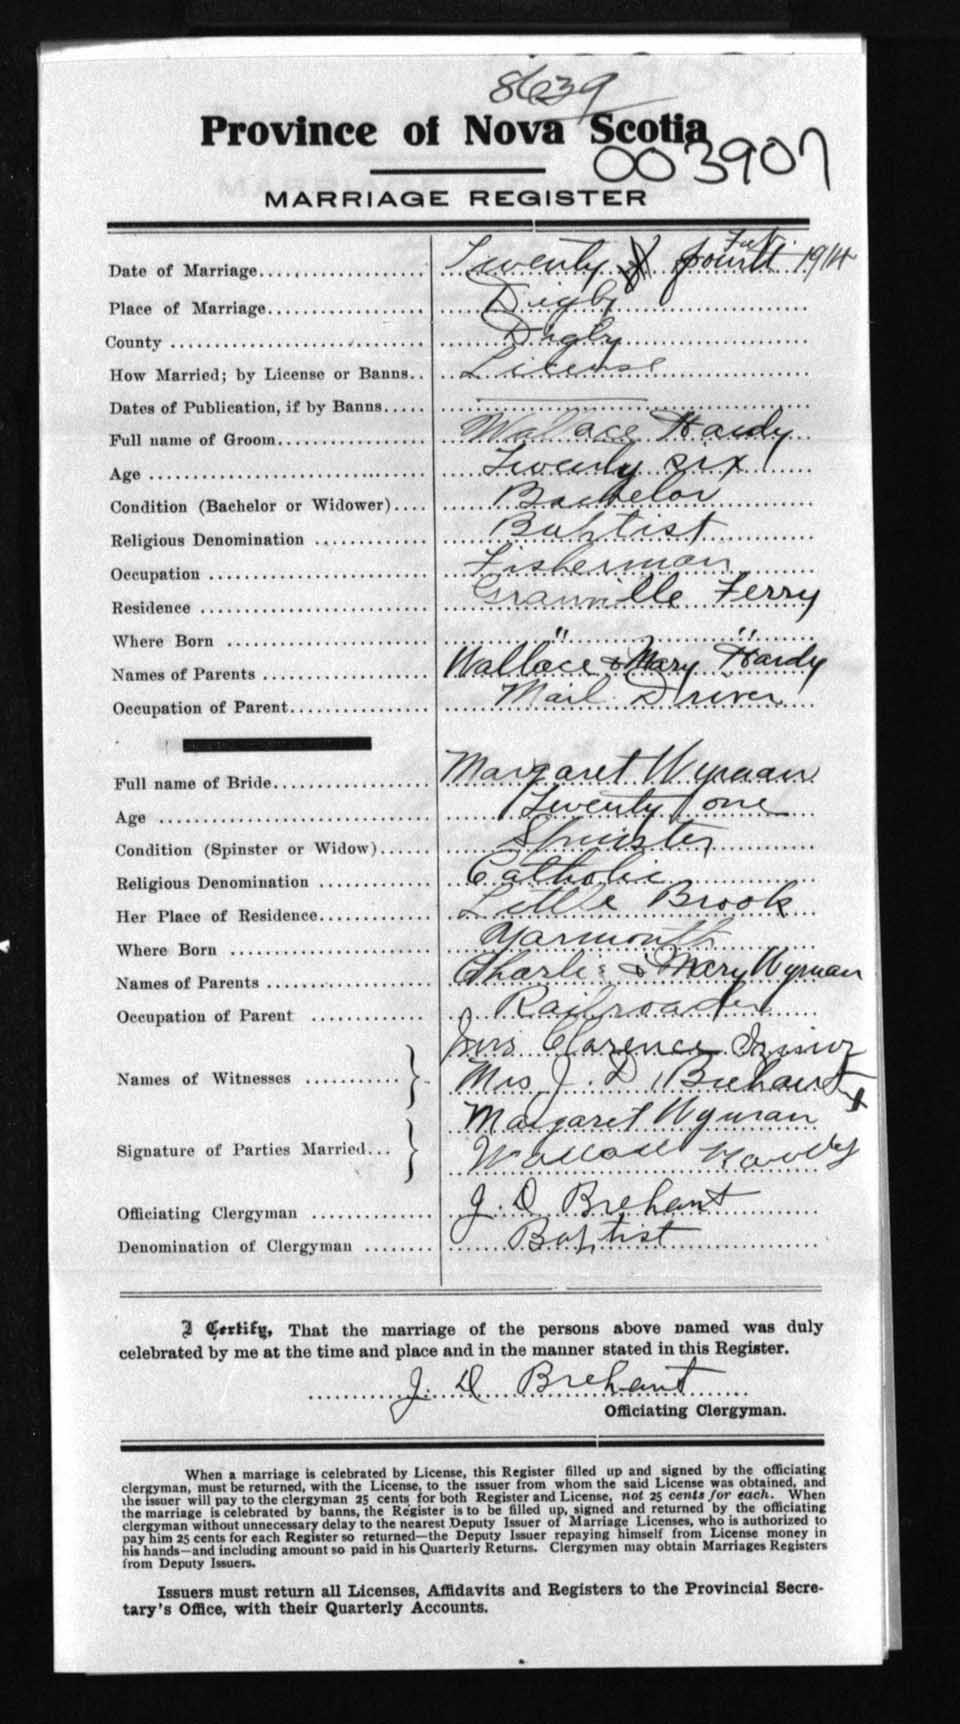 8639
Province of Nova Scotia
003907
MARRIAGE REGISTER
Date of Marriage.................. Twenty fourth 1914
Place of Marriage.................. Digby
County .......................... Digby
How Married; by License or Banns.. License
Dates of Publication, if by Banns..... ———
Full name of Groom................ Wallace Hardy
Age .............................. Twenty six
Condition (Bachelor or Widower).... Bachelor
Religious Denomination ............ Baptist
Occupation ........................ Fisherman
Residence ........................ Granville Ferry
Where Born ...................... " "
Names of Parents .................. Wallace & Mary Hardy
Occupation of Parent................ Mail Driver
Full name of Bride.................. Margaret Wyman
Age .............................. Twenty one
Condition (Spinster or Widow)...... Spinster
Religious Denomination ............ Catholic
Her Place of Residence.............. Little Brook
Where Born ...................... Yarmouth
Names of Parents .................. Charles & Mary Wyman
Occupation of Parent .............. Railroader
Mrs Clarence
Names of Witnesses ............ Mrs J. D. Brehaut
Margaret Wyman
Signature of Parties Married... Wallace Hardy
Officiating Clergyman .............. J. D Brehaut
Denomination of Clergyman ........ Baptist
I Certify, That the marriage of the persons above named was duly
celebrated by me at the time and place and in the manner stated in this Register.
J. D Brehaut
Officiating Clergyman.
When a marriage is celebrated by License, this Register filled up and signed by the officiating
clergyman, must be returned, with the License, to the issuer from whom the said License was obtained, and
the issuer will pay to the clergyman 25 cents for both Register and License, not 25 cents for each. When
the marriage is celebrated by banns, the Register is to be filled up, signed and returned by the officiating
clergyman without unnecessary delay to the nearest Deputy Issuer of Marriage Licenses, who is authorized to
pay him 25 cents for each Register so returned—the Deputy Issuer repaying himself from License money in
his hands—and including amount so paid in his Quarterly Returns. Clergymen may obtain Marriages Registers
from Deputy Issuers.
Issuers must return all Licenses, Affidavits and Registers to the Provincial Secre-
tary's Office, with their Quarterly Accounts.